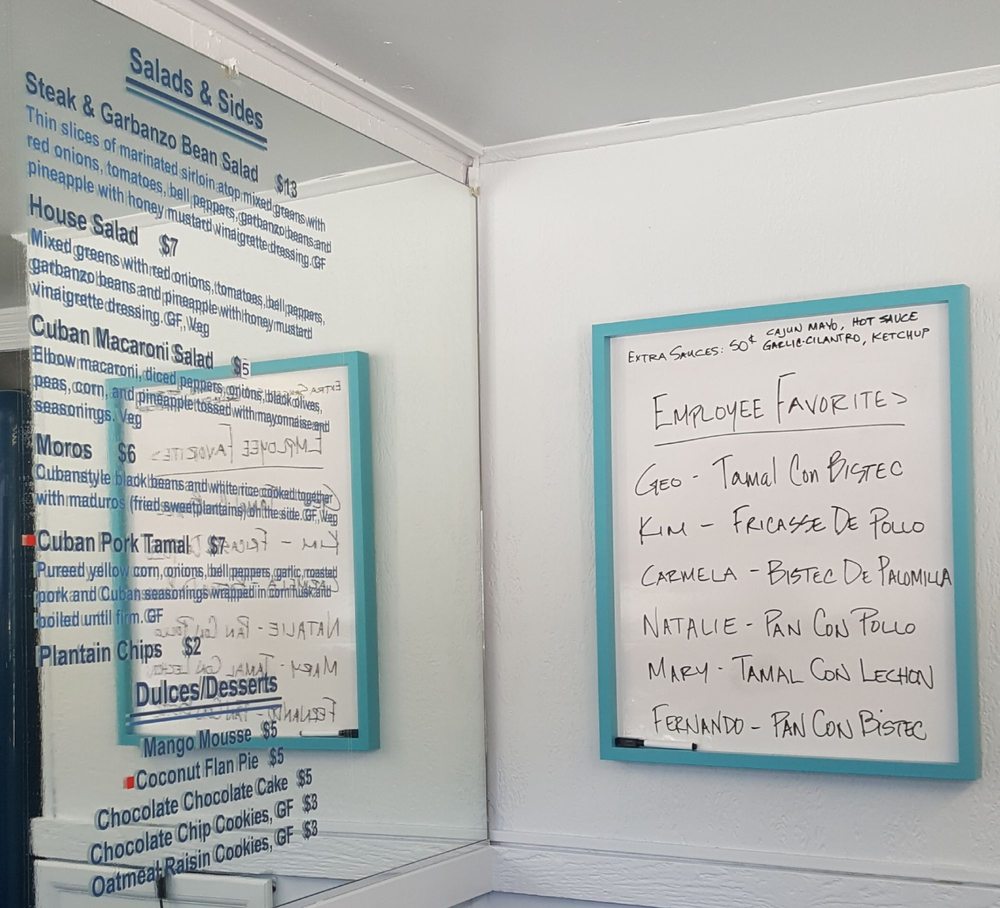 Salads & Sides
Steak & Garbanzo Bean Salad $13
Thin slices of marinated sirloin atop mixed greens with
red onions, tomatoes, bell peppers, garbanzo beans and
pineapple with honey mustard vinaigrette dressing. GF
House Salad $7
Mixed greens with red onions, tomatoes, bell peppers,
garbanzo beans and pineapple with honey mustard
vinaigrette dressing. GF, Veg
Cuban Macaroni Salad $5
Elbow macaroni, diced peppers, onions, black olives,
peas, corn, and pineapple tossed with mayonnaise and
seasonings. Veg
Moros $6
Cuban style black beans and white rice cooked together
with maduros (fried sweet plantains) on the side. GF, Veg
Cuban Pork Tamal $7
Pureed yellow corn, onions, bell peppers, garlic, roasted
pork and Cuban seasonings wrapped in corn husk and
boiled until firm. GF
Plantain Chips $2
Dulces/Desserts
Mango Mousse $5
Coconut Flan Pie $5
Chocolate Chocolate Cake $5
Chocolate Chip Cookies, GF $3
Oatmeal Raisin Cookies, GF $3
EXTRA SAUCES: 50¢ CAJUN MAYO, HOT SAUCE
GARLIC-CILANTRO, KETCHUP
EMPLOYEE FAVORITES
GEO - Tamal Con BISTEC
KIM - FRICASSE DE POLLO
CARMELA - BISTEC DE PALOMILLA
NATALIE - PAN CON POLLO
MARY - TAMAL CON LECHON
FERNANDO - PAN CON BISTEC